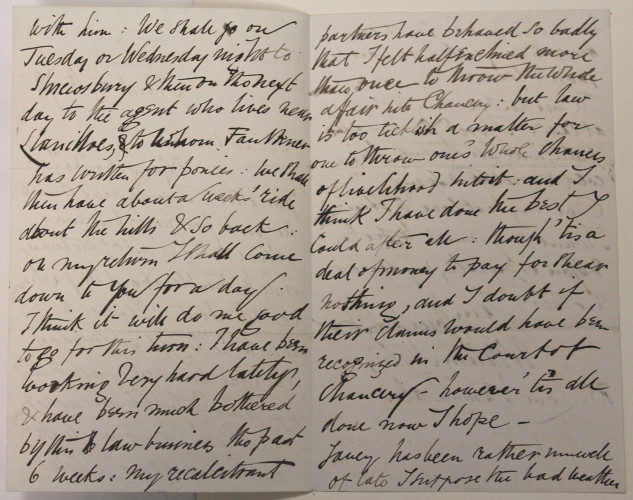 with him: We shall go on
Tuesday or Wednesday night to
Shrewsbury & then on the next
day to the agent who lives near
Llanidloes, & to whom Faulkner
has written for ponies: we shall
then have about a weeks' ride
about the hills & so back:
on my return I shall come
down to you for a day.
I think it will do me good
to go for this turn: I have been
working very hard lately,
& have been much bothered
by this law business the past
6 weeks: my recalcitrant
partners have behaved so badly
that I felt half inclined more
than once to throw the whole
affair into Chancery: but law
is too ticklish a matter for
one to throw one's whole chances
of livelihood into it: and I
think I have done the best I
could after all: though 'tis a
deal of money to pay for
nothing, and I doubt if
their claims would have been
recognized in the Court of
Chancery - however 'tis all
done now I hope -
Janey has been rather unwell
of late I suppose the bad weather